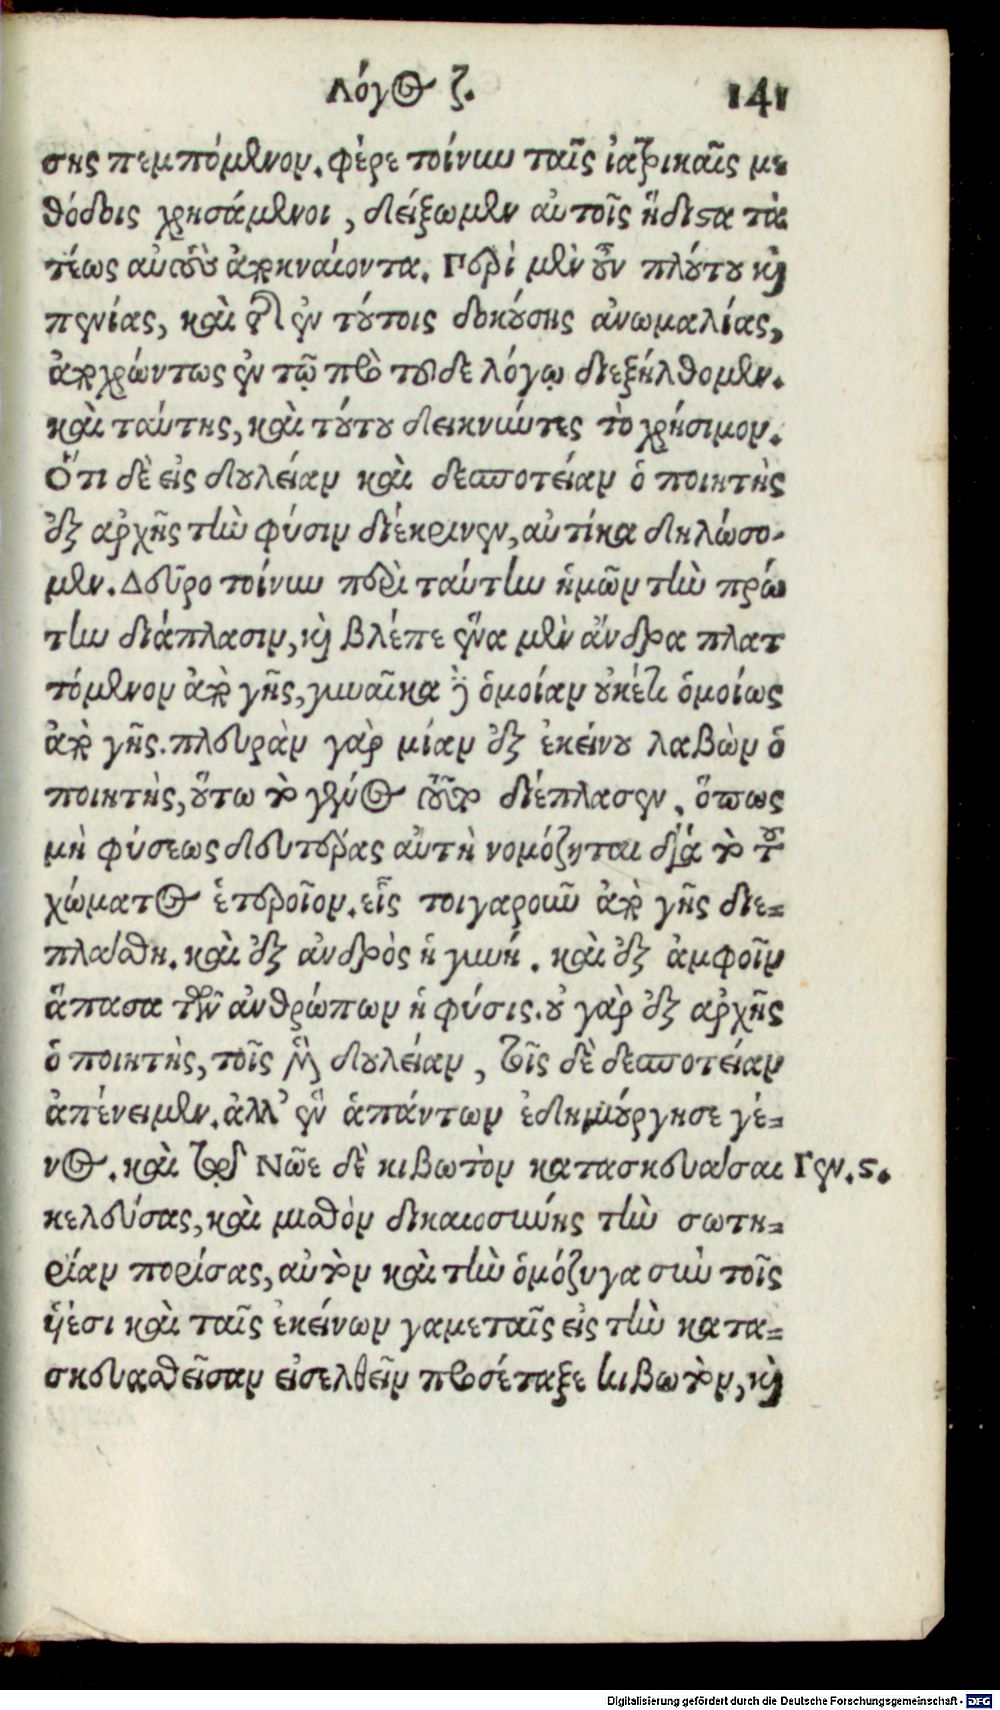 Λόγος ζ. 141
σης πεμπόμενον. φέρε τοίνυν ταῖς ἰατρικαῖς με
θόδοις χρησάμενοι, δείξωμεν αὐτοῖς ἥδιστα τὰ
τέως αὐτοὺς ἀποκναίοντα. Περὶ μὲν οὖν πλούτου καὶ
πενίας, καὶ τῆς ἐν τούτοις δοκούσης ἀνωμαλίας,
ἀποχρώντως ἐν τῷ πρὸ τοῦδε λόγῳ διεξήλθομεν.
καὶ ταύτης, καὶ τούτου δεικνύντες τὸ χρήσιμον.
Ὅτι δὲ εἰς δουλείαν καὶ δεσποτείαν ὁ ποιητὴς
ἐξ ἀρχῆς τὴν φύσιν διέκρινεν, αὐτίκα δηλώσο-
μεν. Δεῦρο τοίνυν περὶ ταύτην ἡμῶν τὴν πρώ
την διάπλασιν, καὶ βλέπε ἕνα μὲν ἄνδρα πλατ
τόμενον ἀπὸ γῆς, γυναῖκα δὲ ὁμοίαν οὐκέτι ὁμοίως
ἀπὸ γῆς. πλευρὰν γὰρ μίαν ἐξ ἐκείνου λαβὼν ὁ
ποιητὴς, οὕτω τὸ γένος τοῦτο διέπλασεν, ὅπως
μὴ φύσεως δευτέρας αὐτὴ νομίζηται διὰ τὸ τοῦ
χώματος ἑτεροῖον. εἷς τοιγαροῦν ἀπὸ γῆς διε-
πλάσθη. καὶ ἐξ ἀνδρὸς ἡ γυνή. καὶ ἐξ ἀμφοῖν
ἅπασα τῶν ἀνθρώπων ἡ φύσις. οὐ γὰρ ἐξ ἀρχῆς
ὁ ποιητὴς, τοῖς μὲν δουλείαν, τοῖς δὲ δεσποτείαν
ἀπένειμεν. ἀλλ' ἓν ἁπάντων ἐδημιούργησε γέ-
νος. καὶ τῷ Νῶε δὲ κιβωτὸν κατασκευάσαι Γεν. ς.
κελεύσας, καὶ μισθὸν δικαιοσύνης τὴν σωτη-
ρίαν πορίσας, αὐτὸν καὶ τὴν ὁμόζυγα σὺν τοῖς
υἱέσι καὶ ταῖς ἐκείνων γαμεταῖς εἰς τὴν κατα-
σκευασθεῖσαν εἰσελθεῖν προσέταξε κιβωτὸν, καὶ
Digitalisierung gefördert durch die Deutsche Forschungsgemeinschaft - DFG